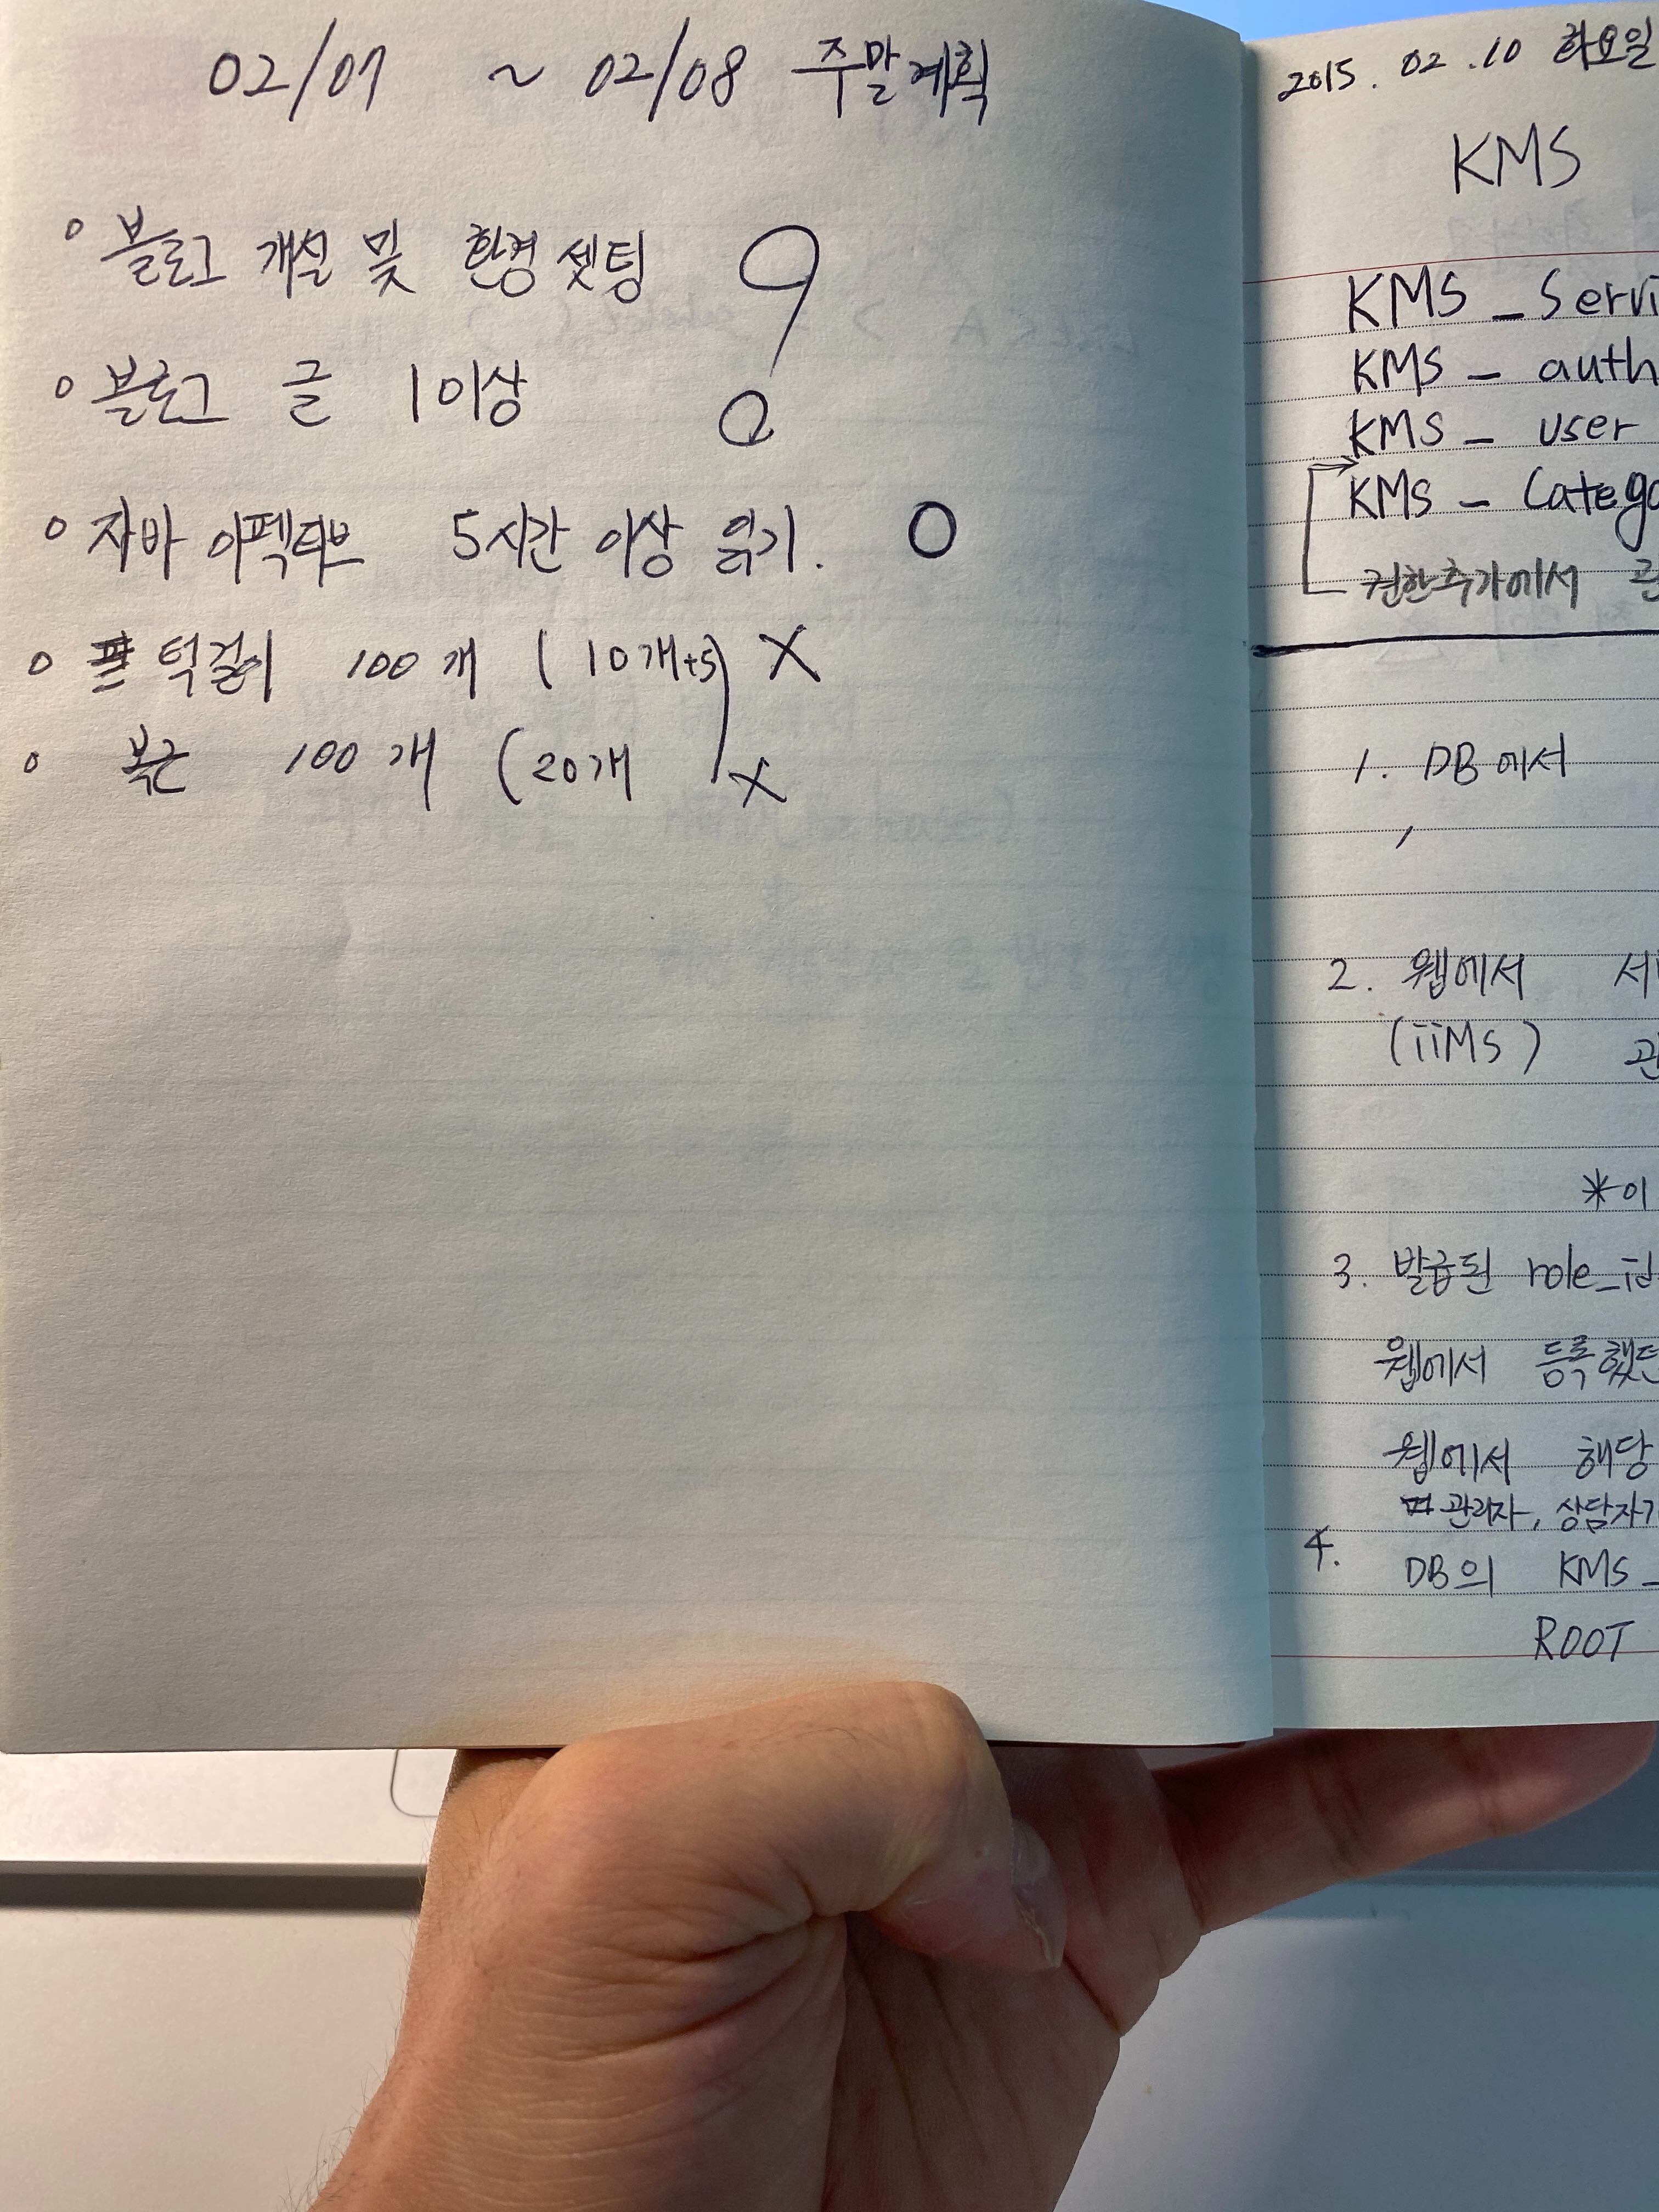 02/07 ~ 02/08 주말계획
블로그 개설 및 환경셋팅 O
블로그 글 1이상 O
자바 이펙티브 5시간 이상 읽기. O
턱걸이 100개 (10개+5) X
복근 100개 (20개 X
2015.02.10 화요일
KMS
KMS_Servi
KMS_auth
KMS_user
KMS_Catego
권한추가에서 관
1. DB에서
2. 웹에서 서
(iiMS) 관
*이
3. 발급된 role_id
웹에서 등록했던
웹에서 해당
관리자, 상담자가
4. DB의 KMS_
ROOT